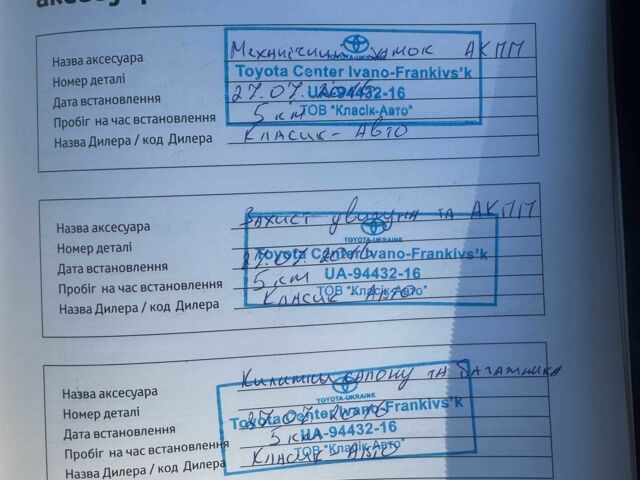 Назва аксесуара Механічний замок АКПП
TOYOTA-UKRAINE
Номер деталі Toyota Center Ivano-Frankivs'k
Дата встановлення 27.07.2016 UA-94432-16
Пробіг на час встановлення 5 км ТОВ "Класік-Авто"
Назва Дилера / код Дилера Класик-Авто
Назва аксесуара Захист двигуна та АКПП
TOYOTA-UKRAINE
Номер деталі Toyota Center Ivano-Frankivs'k
Дата встановлення 27.07.2016 UA-94432-16
Пробіг на час встановлення 5 км ТОВ "Класік-Авто"
Назва Дилера / код Дилера Класик Авто
Назва аксесуара Килимки салону та багажника
TOYOTA-UKRAINE
Номер деталі Toyota Center Ivano-Frankivs'k
Дата встановлення 27.07.2016 UA-94432-16
Пробіг на час встановлення 5 км ТОВ "Класік-Авто"
Назва Дилера / код Дилера Класик Авто